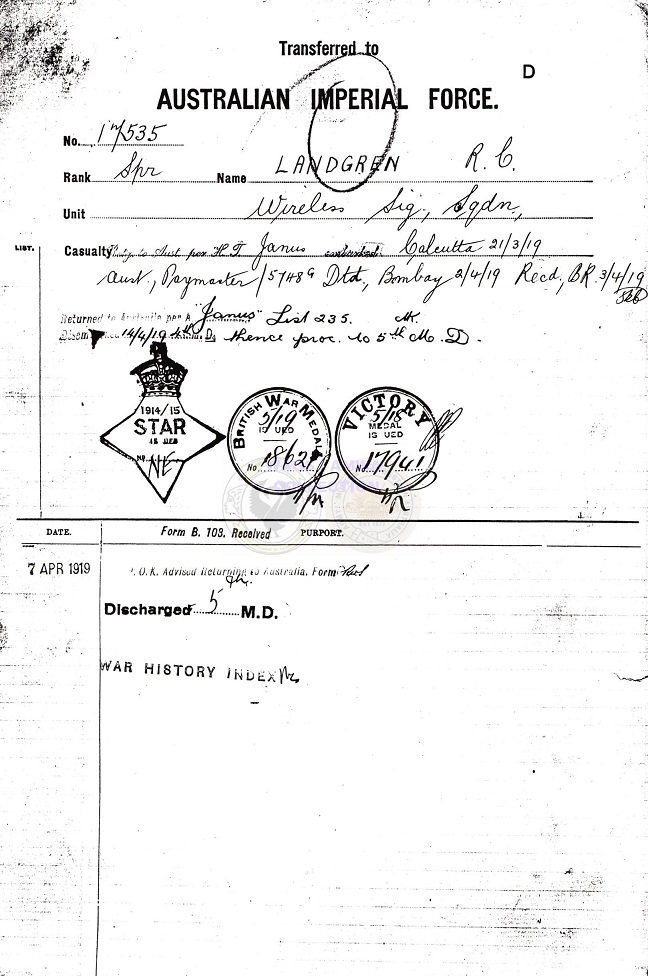 Transferred to
D
AUSTRALIAN IMPERIAL FORCE.
No. 1 N/535
Rank Spr Name LANDGREN R. C.
Unit Wireless Sig., Sqdn,
LIST.
Casualty to Aust. per H.T. Janus embarked Calcutta 21/3/19
Aust, Paymaster /57489 Dtd, Bombay 2/4/19 Recd, BR. 3/4/19
Returned to Australia per "Janus" List 235.
14/4/19 4th M.D. thence proc. to 5th M. D.
1914/15
STAR
ISSUED
No. NE
BRITISH WAR MEDAL
5/19
ISSUED
No. 18621
VICTORY
5/18
MEDAL
ISSUED
No. 17941
DATE. Form B. 103. Received PURPORT.
7 APR 1919 O.K. Advised Returning to Australia. Form
Discharged 5 M.D.
WAR HISTORY INDEX